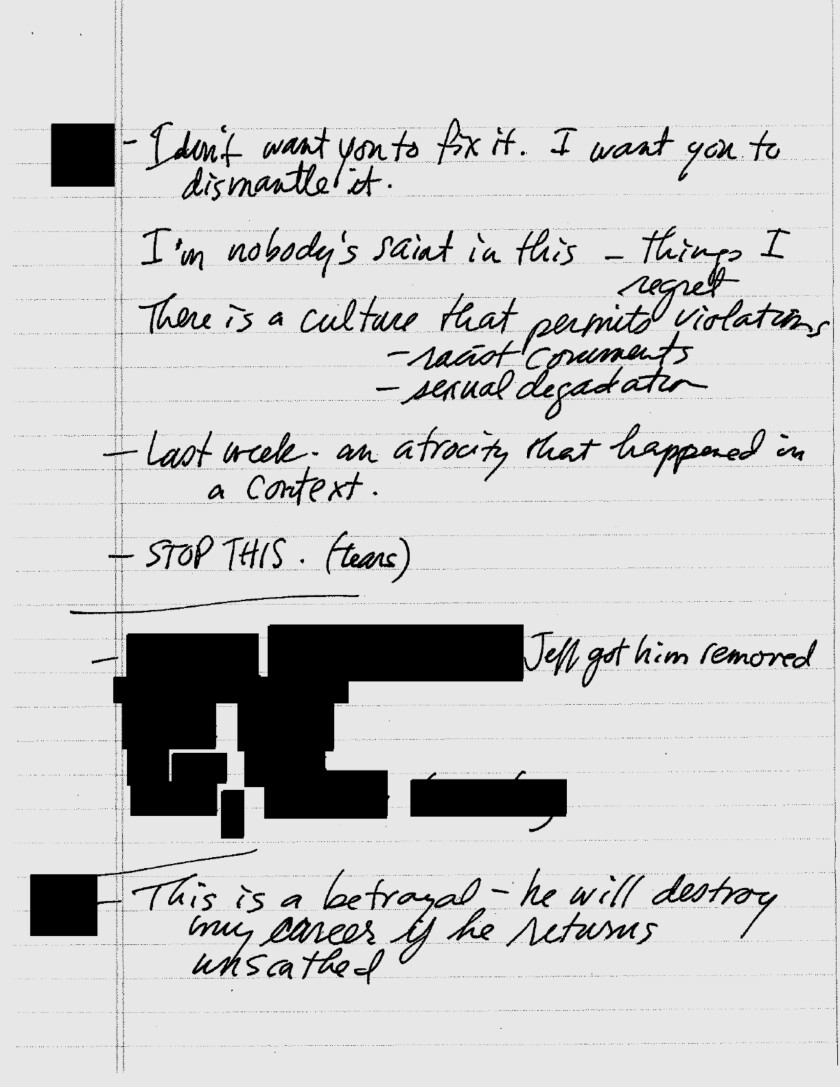 - I don't want you to fix it. I want you to
dismantle it.
I'm nobody's saint in this - things I
regret
There is a culture that permits violations
- racist comments
- sexual degadation
- Last week. an atrocity that happened in
a context.
- STOP THIS. (tears)
- Jeff got him removed
- This is a betrayal - he will destroy
my career if he returns
unscathed